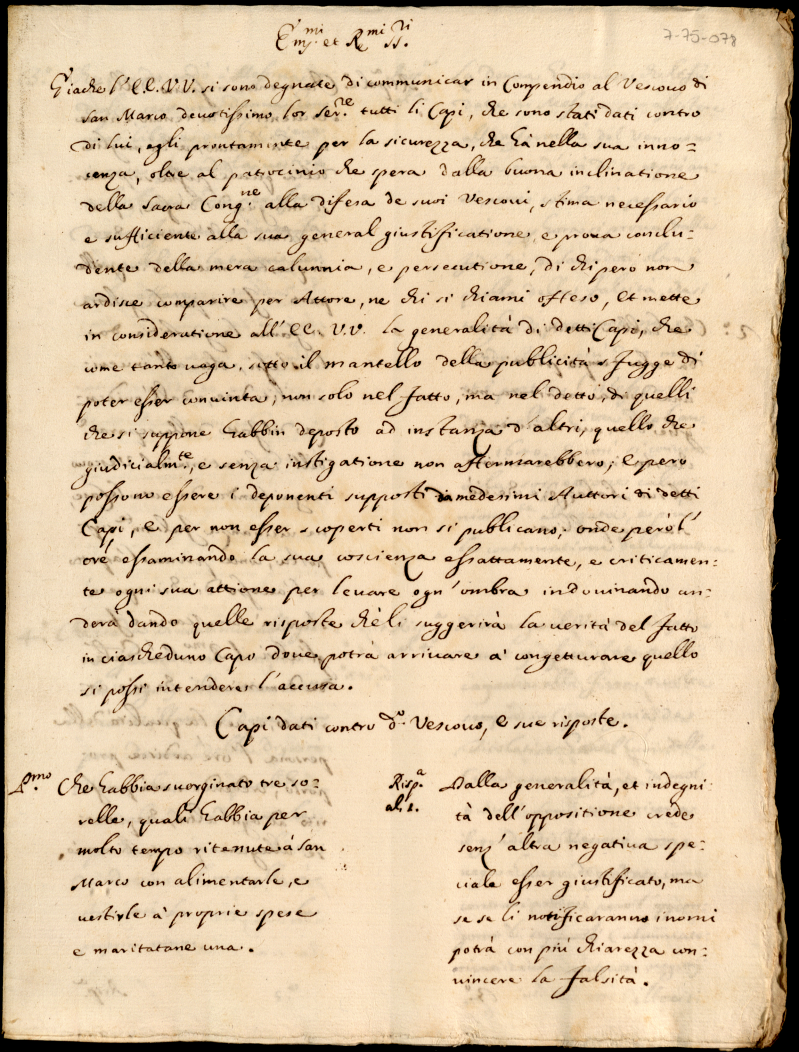 7-75-078
Em.mi et R.mi SS.ri
Giache l'EE.VV. si sono degnate di communicar in Compendio al Vescouo di
San Marco deuotissimo lor ser.re tutti li Capi, che sono stati dati contro
di lui, egli prontamente per la sicurezza, che hà nella sua inno=
cenza, oltre al patrocinio che spera dalla buona inclinatione
della Sacra Cong.ne alla difesa de suoi Vescoui, stima necessario
e sufficiente alla sua general giustificatione, e proua conclu=
dente della mera calunnia, e persecutione, di chi però non
ardisce comparire per Attore, ne chi si chiami offeso, et mette
in consideratione all'EE. VV. la generalità di detti Capi, che
come tanto uaga, sotto il mantello della publicità sfugge di
poter esser conuinta, non solo nel fatto, ma nel detto, di quelli
che si suppone habbin deposto ad instanza d'altri, quello che
giudicialm.te, e senza instigatione non affermarebbero; e però
possono essere i deponenti supposti da medesimi Auttori di detti
Capi, e per non esser scoperti non si publicano; onde però l'
ore essaminando la sua coscienza essattamente, e criticamen=
te ogni sua attione per leuare ogn'ombra indouinando an=
derà dando quelle risposte che li suggerirà la uerità del fatto
in ciascheduno Capo doue potrà arriuare à congetturare quello
si possi intendere l'accusa.
Capi dati contro d.o Vescouo, e sue risposte.
P.mo Che habbia suorginato tre so=
relle, quali habbia per
molto tempo ritenute à San
Marco con alimentarle, e
uestirle à proprie spese
e maritatane una.
Risp.a al 1. Dalla generalità, et indegni
tà dell'oppositione crede
senz'altra negatiua spe=
ciale esser giustificato, ma
se se li notificaranno i nomi
potrà con più chiarezza con=
uincere la falsità.